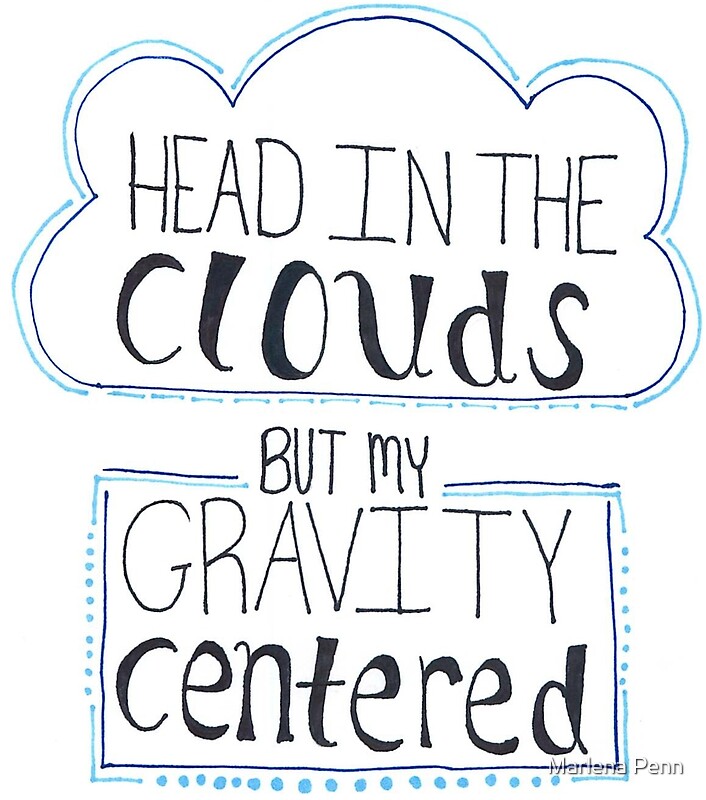 HEAD IN THE
clouds
BUT MY
GRAVITY
centered
Marlena Penn